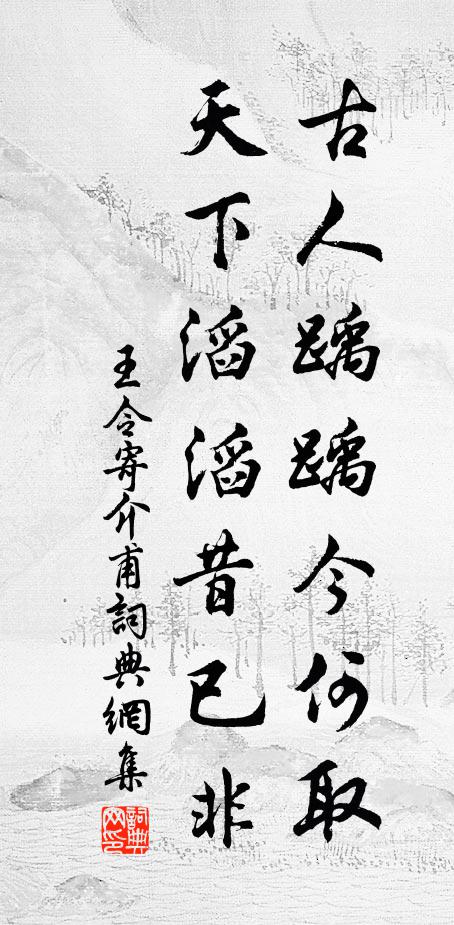 古人踽踽今何取
天下滔滔昔已非
王令寄介甫詞典網集
詞典网印